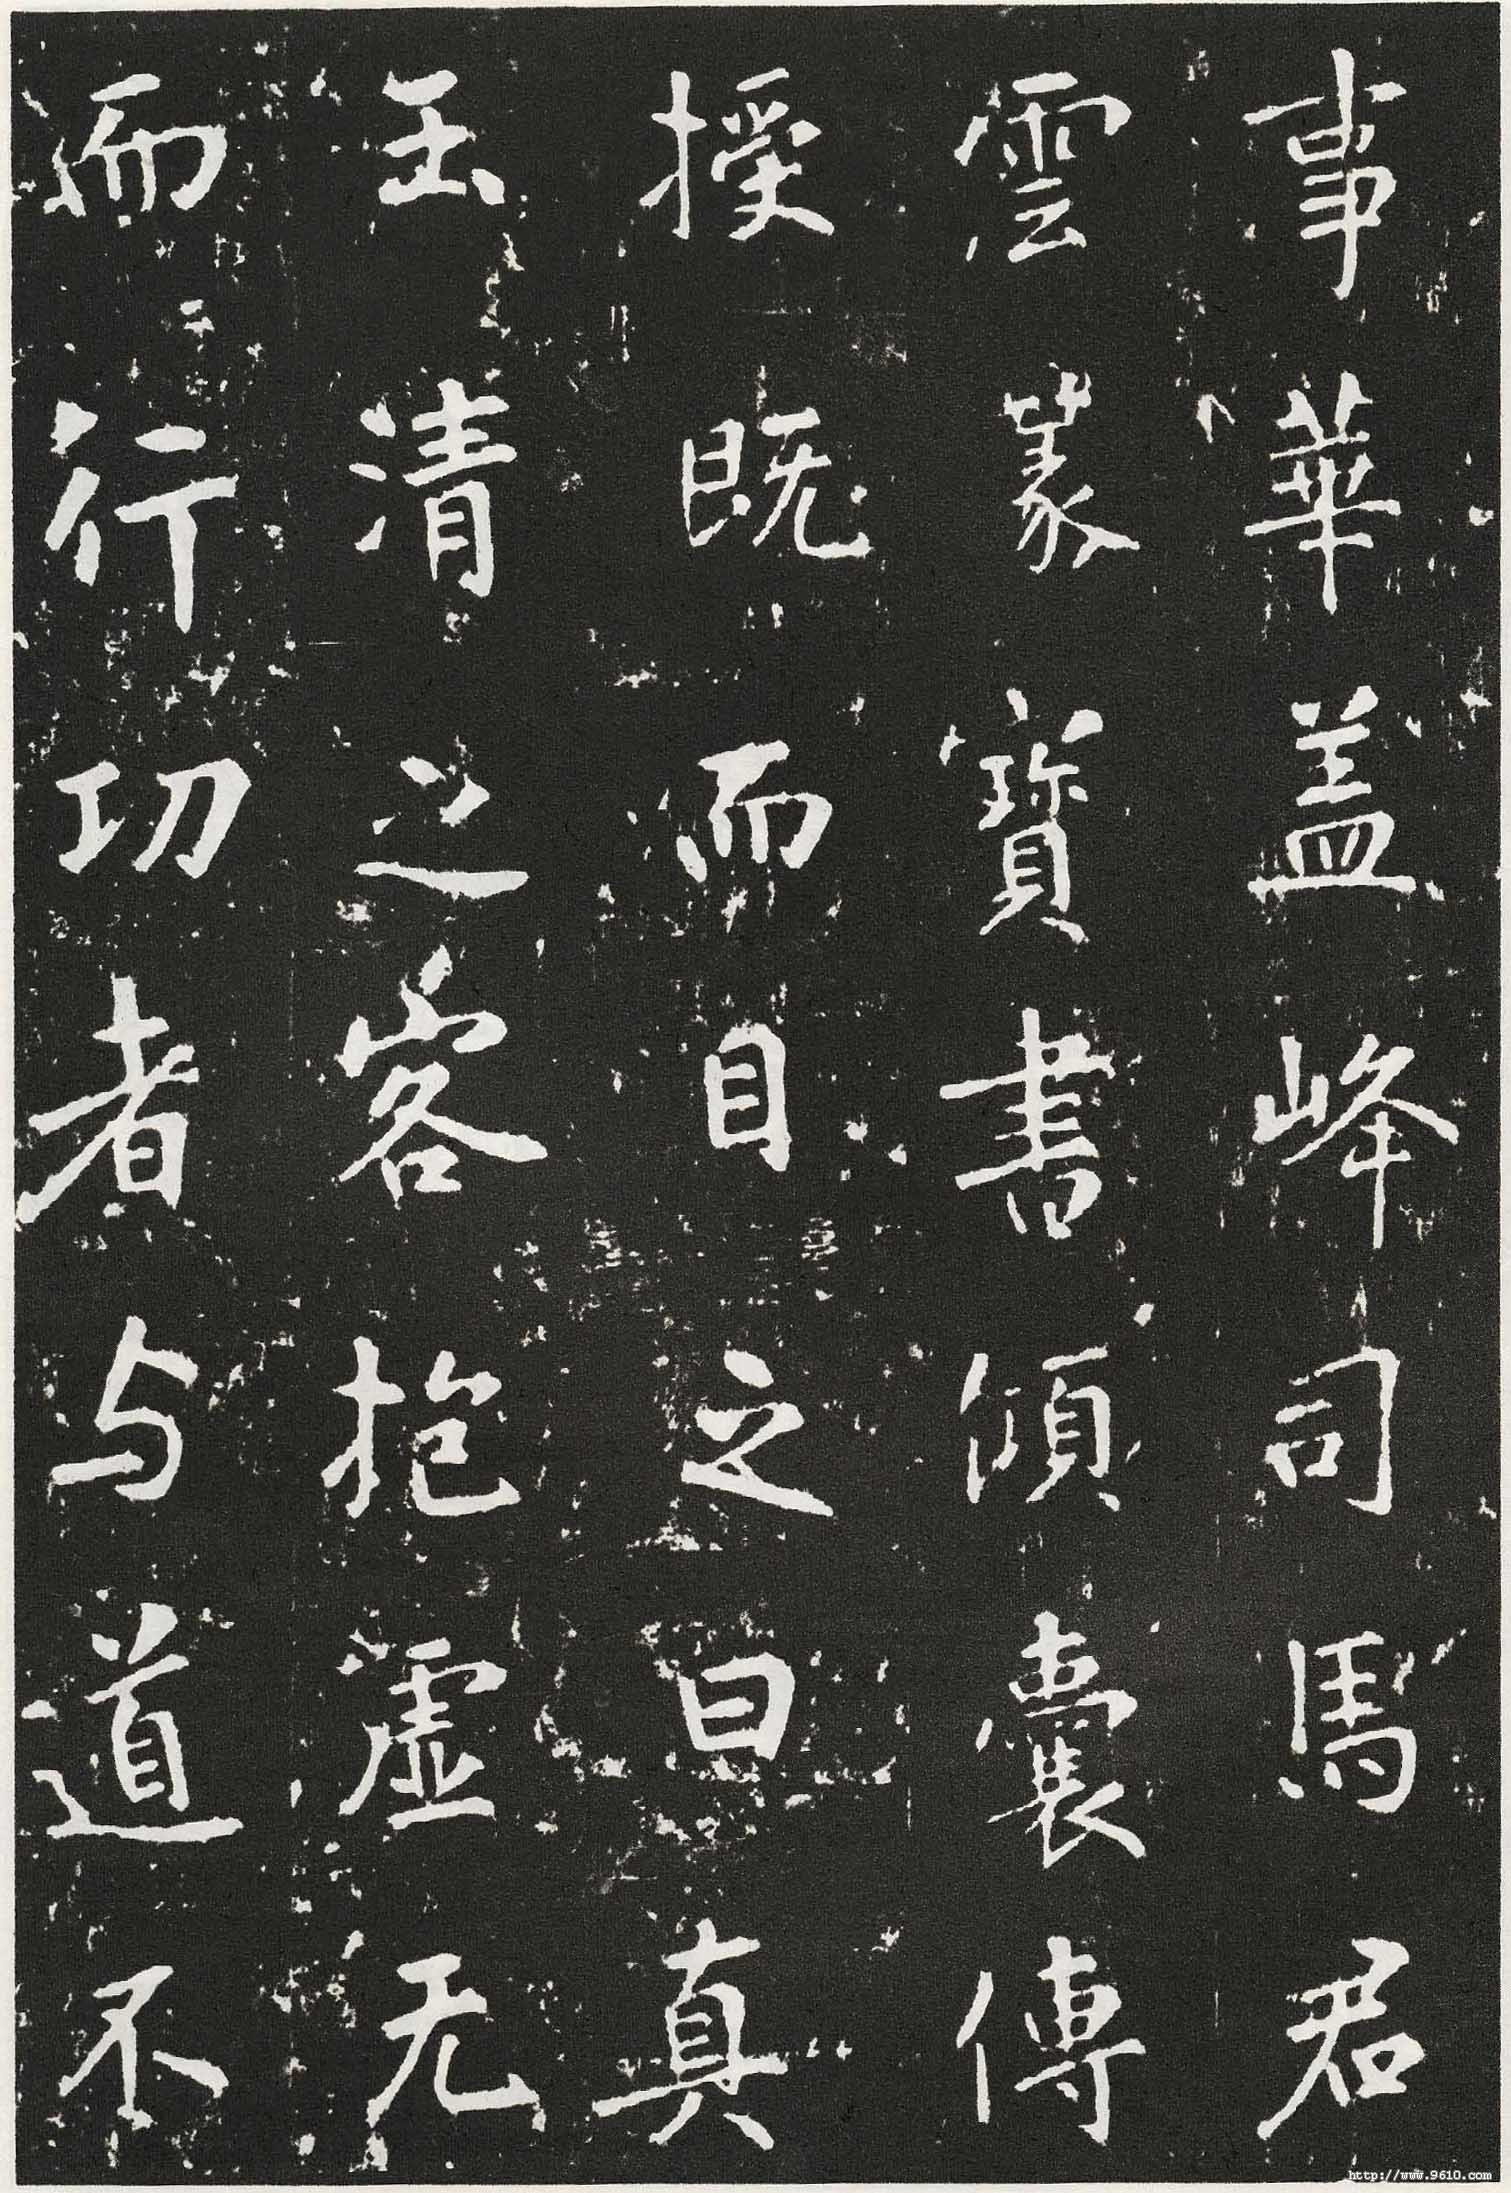 事華盖峰司馬君
雲篆寶書傾囊傳
授既而目之曰真
玉清之客抱虛无
而行功者与道不
http://www.9610.com